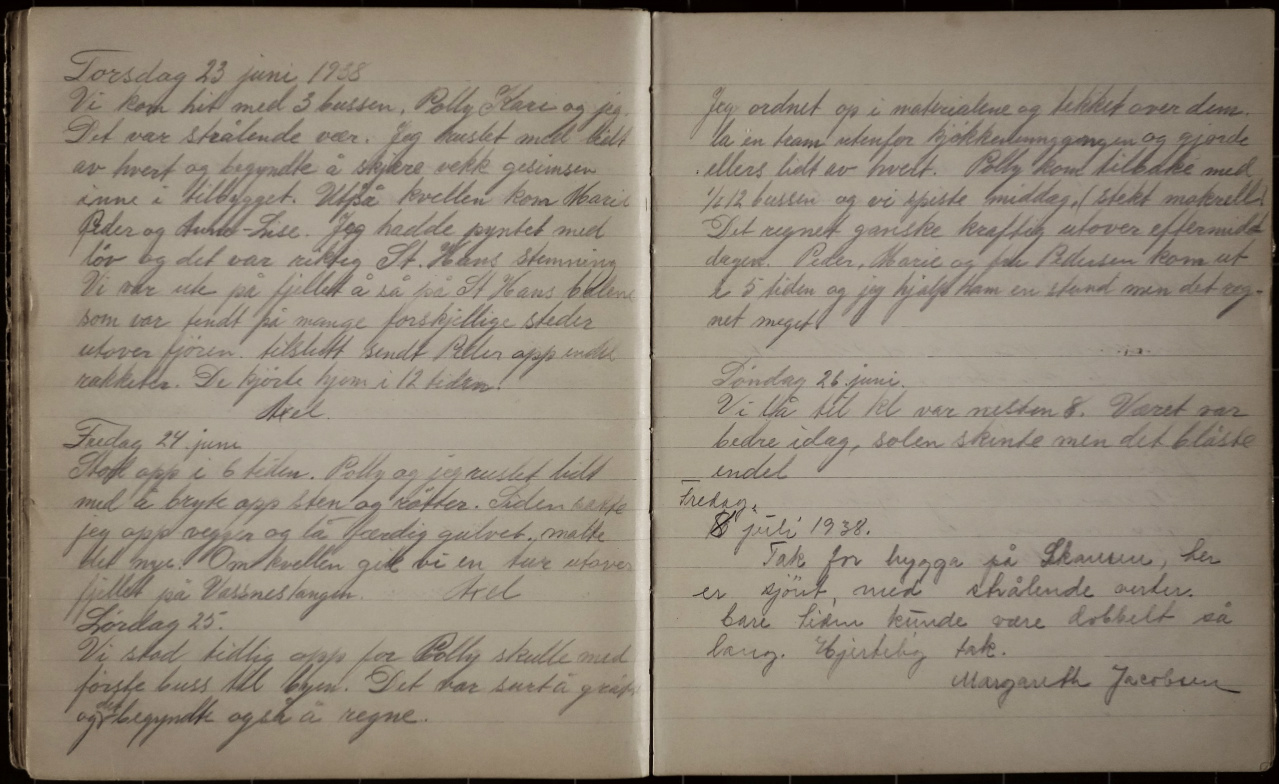 Torsdag 23 juni 1938
Vi kom hit med 3 bussen, Polly Kare og jeg.
Det var strålende vær. Jeg rustet med lidt
av hvert og begyndte å skjære vekk gesimsen
inne i tilbygget. Utpå kvellen kom Marie
Peder og Anne-Lise. Jeg hadde pyntet med
løv og det var riktig St. Hans stemning
Vi var ute på fjellet å så på St Hans bålene
som var tendt på mange forskjellige steder
utover fjören. tilslutt sendt Peder opp endel
rakketer. De kjörte hjem i 12 tiden.
Axel.
Fredag 24. juni
Stod opp i 6 tiden. Polly og jeg rustet lidt
med å bryte opp sten og rötter. Siden
jeg opp vegger og la færdig gulvet, malte
det nye. Om kvellen gik vi en tur utover
fjellet på Vassnestangen. Axel
Lørdag 25.
Vi stod tidlig opp for Polly skulle med
første buss til byen. Det var surt å gråt
og det begyndte også å regne.
Jeg ordnet op i materialene og tekket over dem.
la en tram utenfor kjøkkeninngangen og gjorde
ellers lidt av hvert. Polly kom tilbake med
1/2 12 bussen og vi spiste middag, (stekt makrell)
Det regnet ganske kraftig utover eftermid-
dagen. Peder, Marie og fru Pedersen kom ut
i 5 tiden og jeg hjalp ham en stund men det reg-
net meget.
Söndag 26 juni.
Vi lå til kl var nesten 8. Været var
bedre idag, solen skinte men det blåste
endel
Fredag.
8 juli 1938.
Tak for hygga på Skansen, her
er sjönt, med strålende verter.
bare tiden kunde være dobbelt så
lang. Hjertelig tak.
Margareth Jacobsen